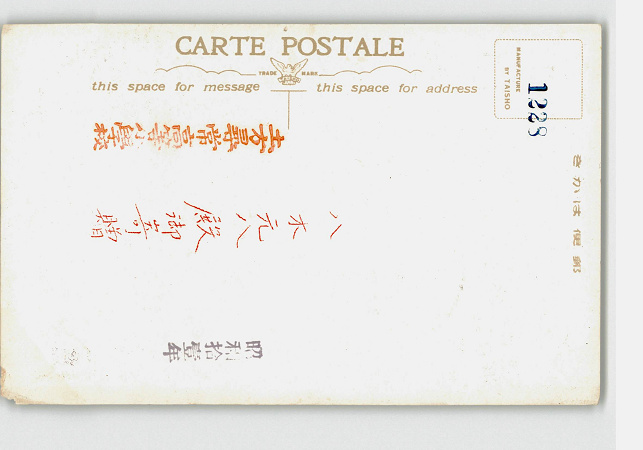 CARTE POSTALE
TRADE MARK
this space for message
this space for address
MANUFACTURE
BY TAISHO
1228
きかは便郵
土方尋常高等小學校
八木元八殿御寄贈
昭和拾壹年